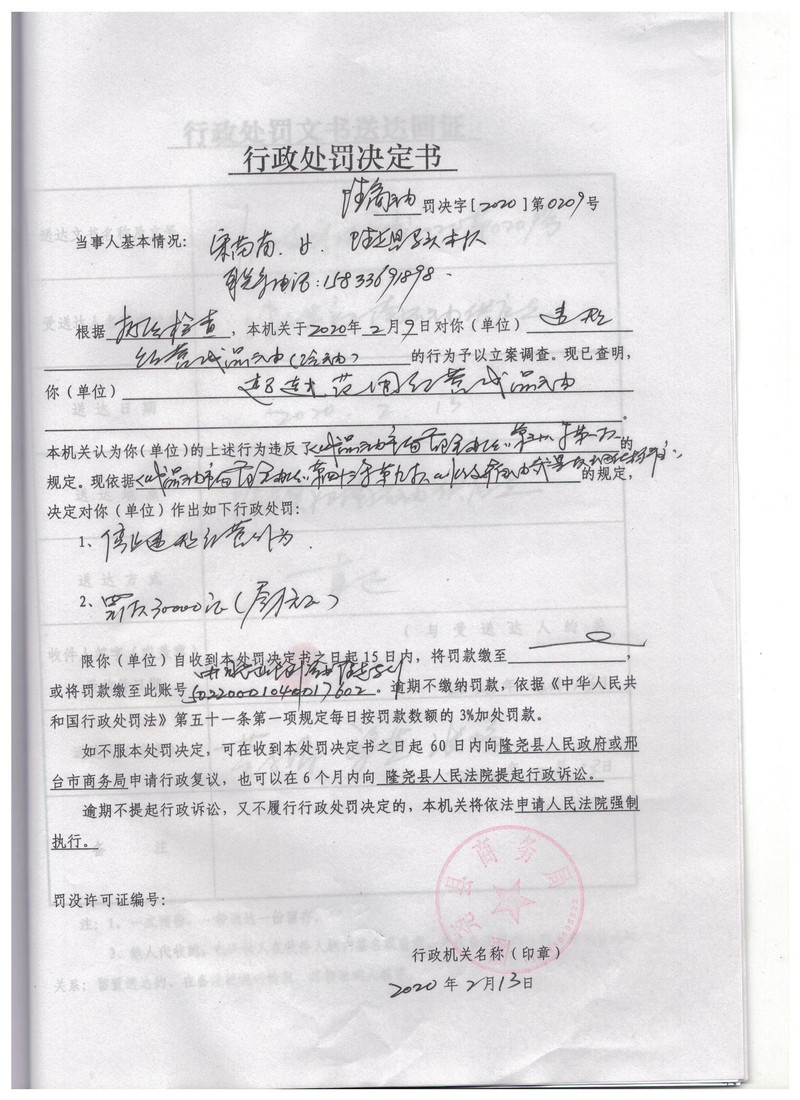 行政处罚决定书
隆商油 罚决字[2020]第0209号
当事人基本情况： 女. 隆尧县
联系电话:15833691898.
根据 执法检查 ，本机关于2020年2月9日对你（单位） 违规
经营成品油 的行为予以立案调查。现已查明，
你（单位） 超越范围经营成品油
。
本机关认为你（单位）的上述行为违反了《成品油市场管理办法》第 条第 的
规定。现依据《成品油市场管理办法》第四十三条第 的规定，
决定对你（单位）作出如下行政处罚：
1、停止违规经营行为.
2、罚款30000元
限你（单位）自收到本处罚决定书之日起15日内，将罚款缴至 ，
或将罚款缴至此账号 50220001040017602 。逾期不缴纳罚款，依据《中华人民共
和国行政处罚法》第五十一条第一项规定每日按罚款数额的3%加处罚款。
如不服本处罚决定，可在收到本处罚决定书之日起60日内向隆尧县人民政府或邢
台市商务局申请行政复议，也可以在6个月内向 隆尧县人民法院提起行政诉讼。
逾期不提起行政诉讼，又不履行行政处罚决定的，本机关将依法申请人民法院强制
执行。
隆尧县商务局
罚没许可证编号：
行政机关名称（印章）
2020年2月13日